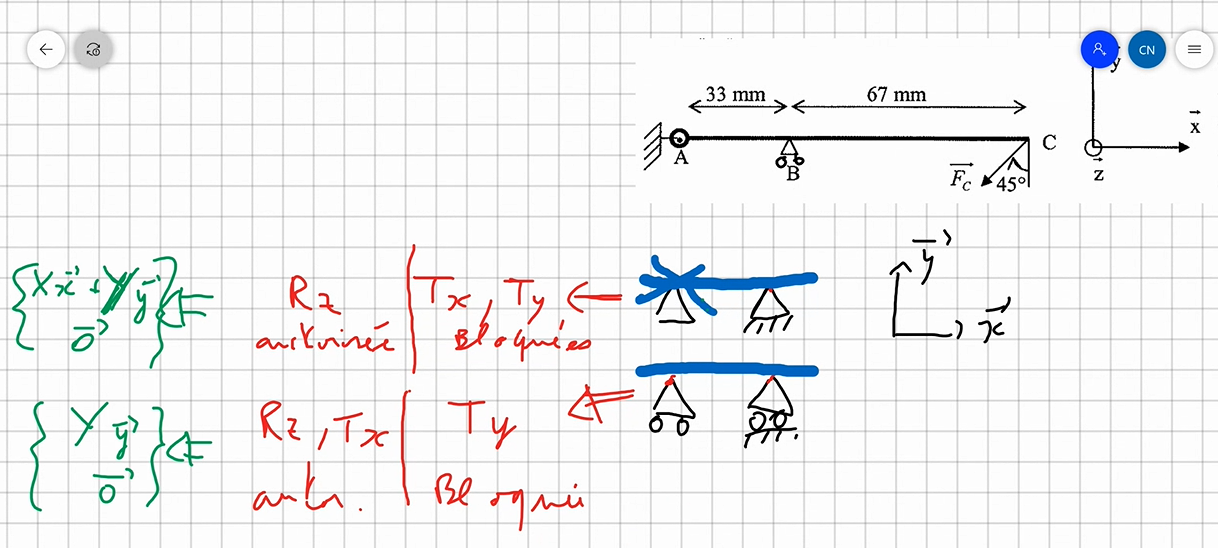 CN
33 mm
67 mm
y
x
A
B
C
F_C
45°
z
Xx + Yy
0
Rz
autorisée
Tx, Ty
Bloquées
y
x
Y y
0
Rz, Tx
autor.
Ty
Bloquée